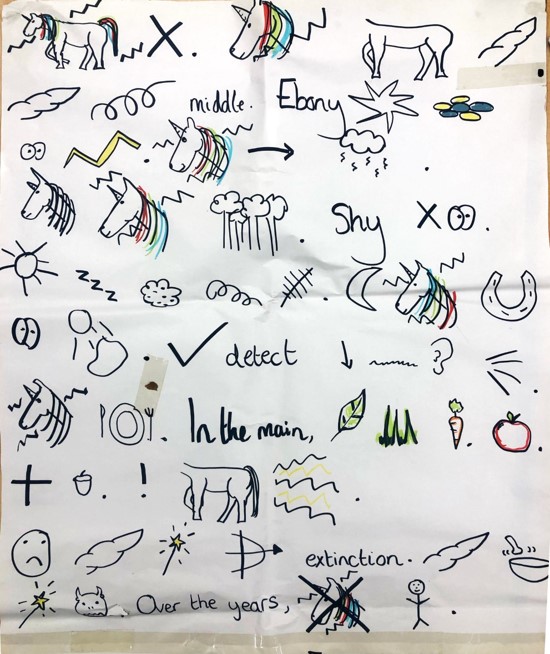 middle. Ebony
Shy
zzz
detect
In the main,
!
extinction.
Over the years,